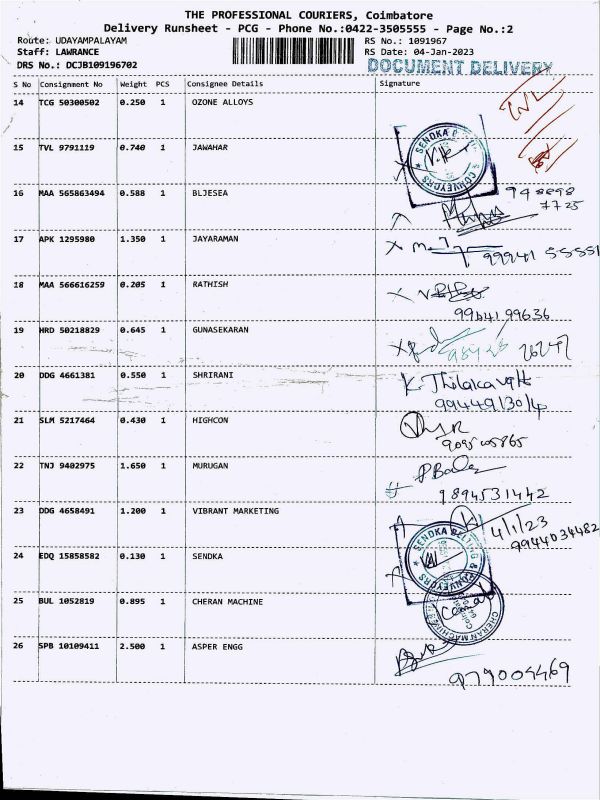 THE PROFESSIONAL COURIERS, Coimbatore
Delivery Runsheet - PCG - Phone No.:0422-3505555 - Page No.:2
Route: UDAYAMPALAYAM RS No.: 1091967
Staff: LAWRANCE RS Date: 04-Jan-2023
DRS No.: DCJB109196702 DOCUMENT DELIVERY
S No Consignment No Weight PCS Consignee Details Signature
14 TCG 50300502 0.250 1 OZONE ALLOYS
15 TVL 9791119 0.740 1 JAWAHAR
SENDKA & CONVEYORS
16 MAA 565863494 0.588 1 BLJESEA
7725
17 APK 1295980 1.350 1 JAYARAMAN
99941 55551
18 MAA 566616259 0.205 1 RATHISH
9944199636
19 HRD 50218829 0.645 1 GUNASEKARAN
20 DDG 4661381 0.550 1 SHRIRANI K. Thilakavathi
9944913014
21 SLM 5217464 0.430 1 HIGHCON
22 TNJ 9402975 1.650 1 MURUGAN
9894531442
23 DDG 4658491 1.200 1 VIBRANT MARKETING 4/1/23
9944034482
SENDKA BELTING & CONVEYORS
24 EDQ 15858582 0.130 1 SENDKA
25 BUL 1052819 0.895 1 CHERAN MACHINE
CHERAN MACHINE
26 SPB 10109411 2.500 1 ASPER ENGG
979004469